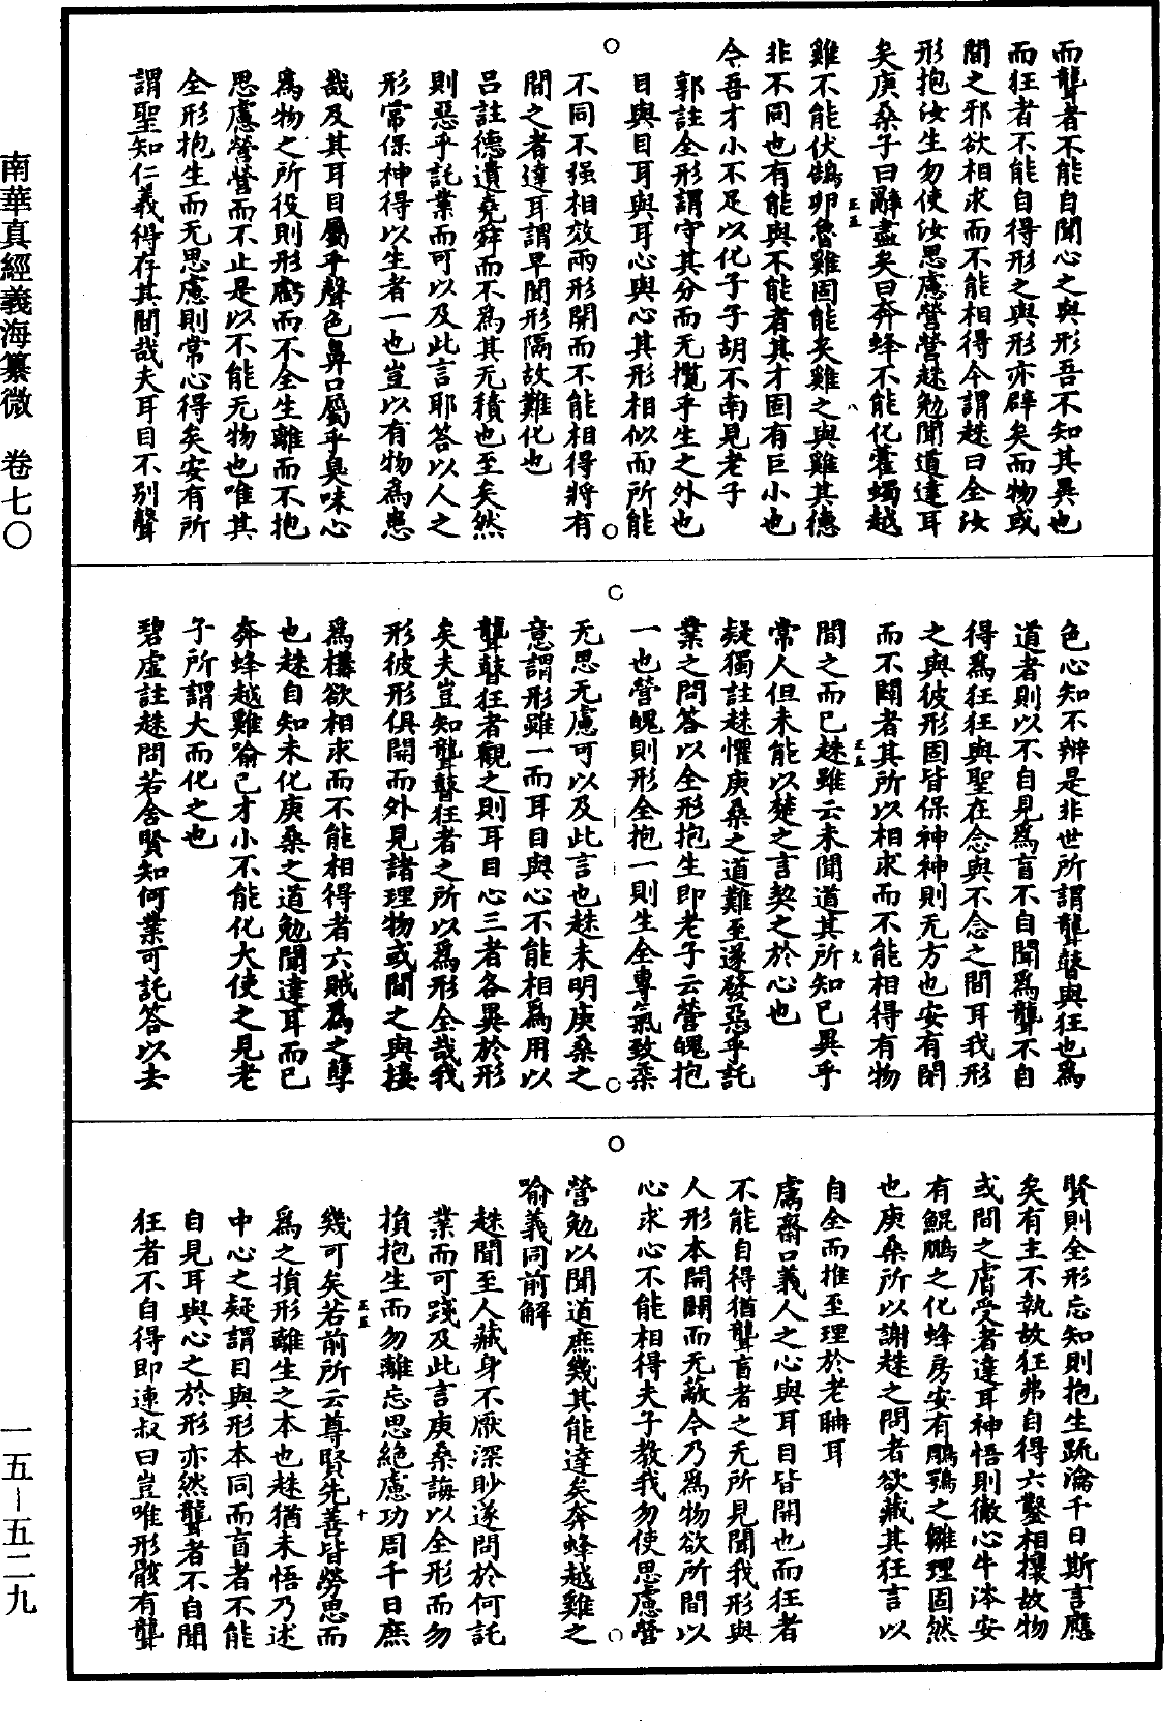 而聾者不能自聞心之與形吾不知其異也
而狂者不能自得形之與形亦辟矣而物或
間之邪欲相求而不能相得今謂趎曰全汝
形抱汝生勿使汝思慮營營趎勉聞道達耳
矣庚桑子曰辭盡矣曰奔蜂不能化藿蠋越
雞不能伏鵠卵魯雞固能矣雞之與雞其德
非不同也有能與不能者其才固有巨小也
今吾才小不足以化子子胡不南見老子
郭註全形謂守其分而无攬乎生之外也
目與目耳與耳心與心其形相似而所能
不同不强相效兩形開而不能相得將有
間之者達耳謂早聞形隔故難化也
呂註德遺堯舜而不為其无積也至矣然
則惡乎託業而可以及此言耶答以人之
形常保神得以生者一也豈以有物為患
哉及其耳目屬乎聲色鼻口屬乎臭味心
為物之所役則形虧而不全生離而不抱
思慮營營而不止是以不能无物也唯其
全形抱生而无思慮則常心得矣安有所
謂聖知仁義得存其間哉夫耳目不別聲
色心知不辨是非世所謂聾瞽與狂也為
道者則以不自見為盲不自聞為聾不自
得為狂狂與聖在念與不念之間耳我形
之與彼形固皆保神神則无方也安有閉
而不闢者其所以相求而不能相得有物
間之而已趎雖云未聞道其所知已異乎
常人但未能以楚之言契之於心也
疑獨註趎懼庚桑之道難至遂發惡乎託
業之問答以全形抱生即老子云營魄抱
一也營魄則形全抱一則生全專氣致柔
无思无慮可以及此言也趎未明庚桑之
意謂形雖一而耳目與心不能相為用以
聾瞽狂者觀之則耳目心三者各異於形
矣夫豈知聾瞽狂者之所以為形全哉我
形彼形俱開而外見諸理物或間之與接
為構欲相求而不能相得者六賊為之孽
也趎自知未化庚桑之道勉聞達耳而已
奔蜂越雞喻己才小不能化大使之見老
子所謂大而化之也
碧虛註趎問若舍賢知何業可託答以去
賢則全形忘知則抱生疏瀹千日斯言應
矣有主不執故狂弗自得六鑿相攘故物
或間之膚受者達耳神悟則徹心牛涔安
有鯤鵬之化蜂房安有鵰鶚之雛理固然
也庚桑所以謝趎之問者欲藏其狂言以
自全而推至理於老聃耳
鬳齋口義人之心與耳目皆開也而狂者
不能自得猶聾盲者之无所見聞我形與
人形本開闢而无蔽今乃為物欲所間以
心求心不能相得夫子教我勿使思慮營
營勉以聞道庶幾其能達矣奔蜂越雞之
喻義同前解
趎聞至人藏身不厭深眇遂問於何託
業而可踐及此言庚桑誨以全形而勿
損抱生而勿離忘思絕慮功周千日庶
幾可矣若前所云尊賢先善皆勞思而
為之損形離生之本也趎猶未悟乃述
中心之疑謂目與形本同而盲者不能
自見耳與心之於形亦然聾者不自聞
狂者不自得即連叔曰豈唯形骸有聾
南華真經義海纂微 卷七〇
一五—五二九